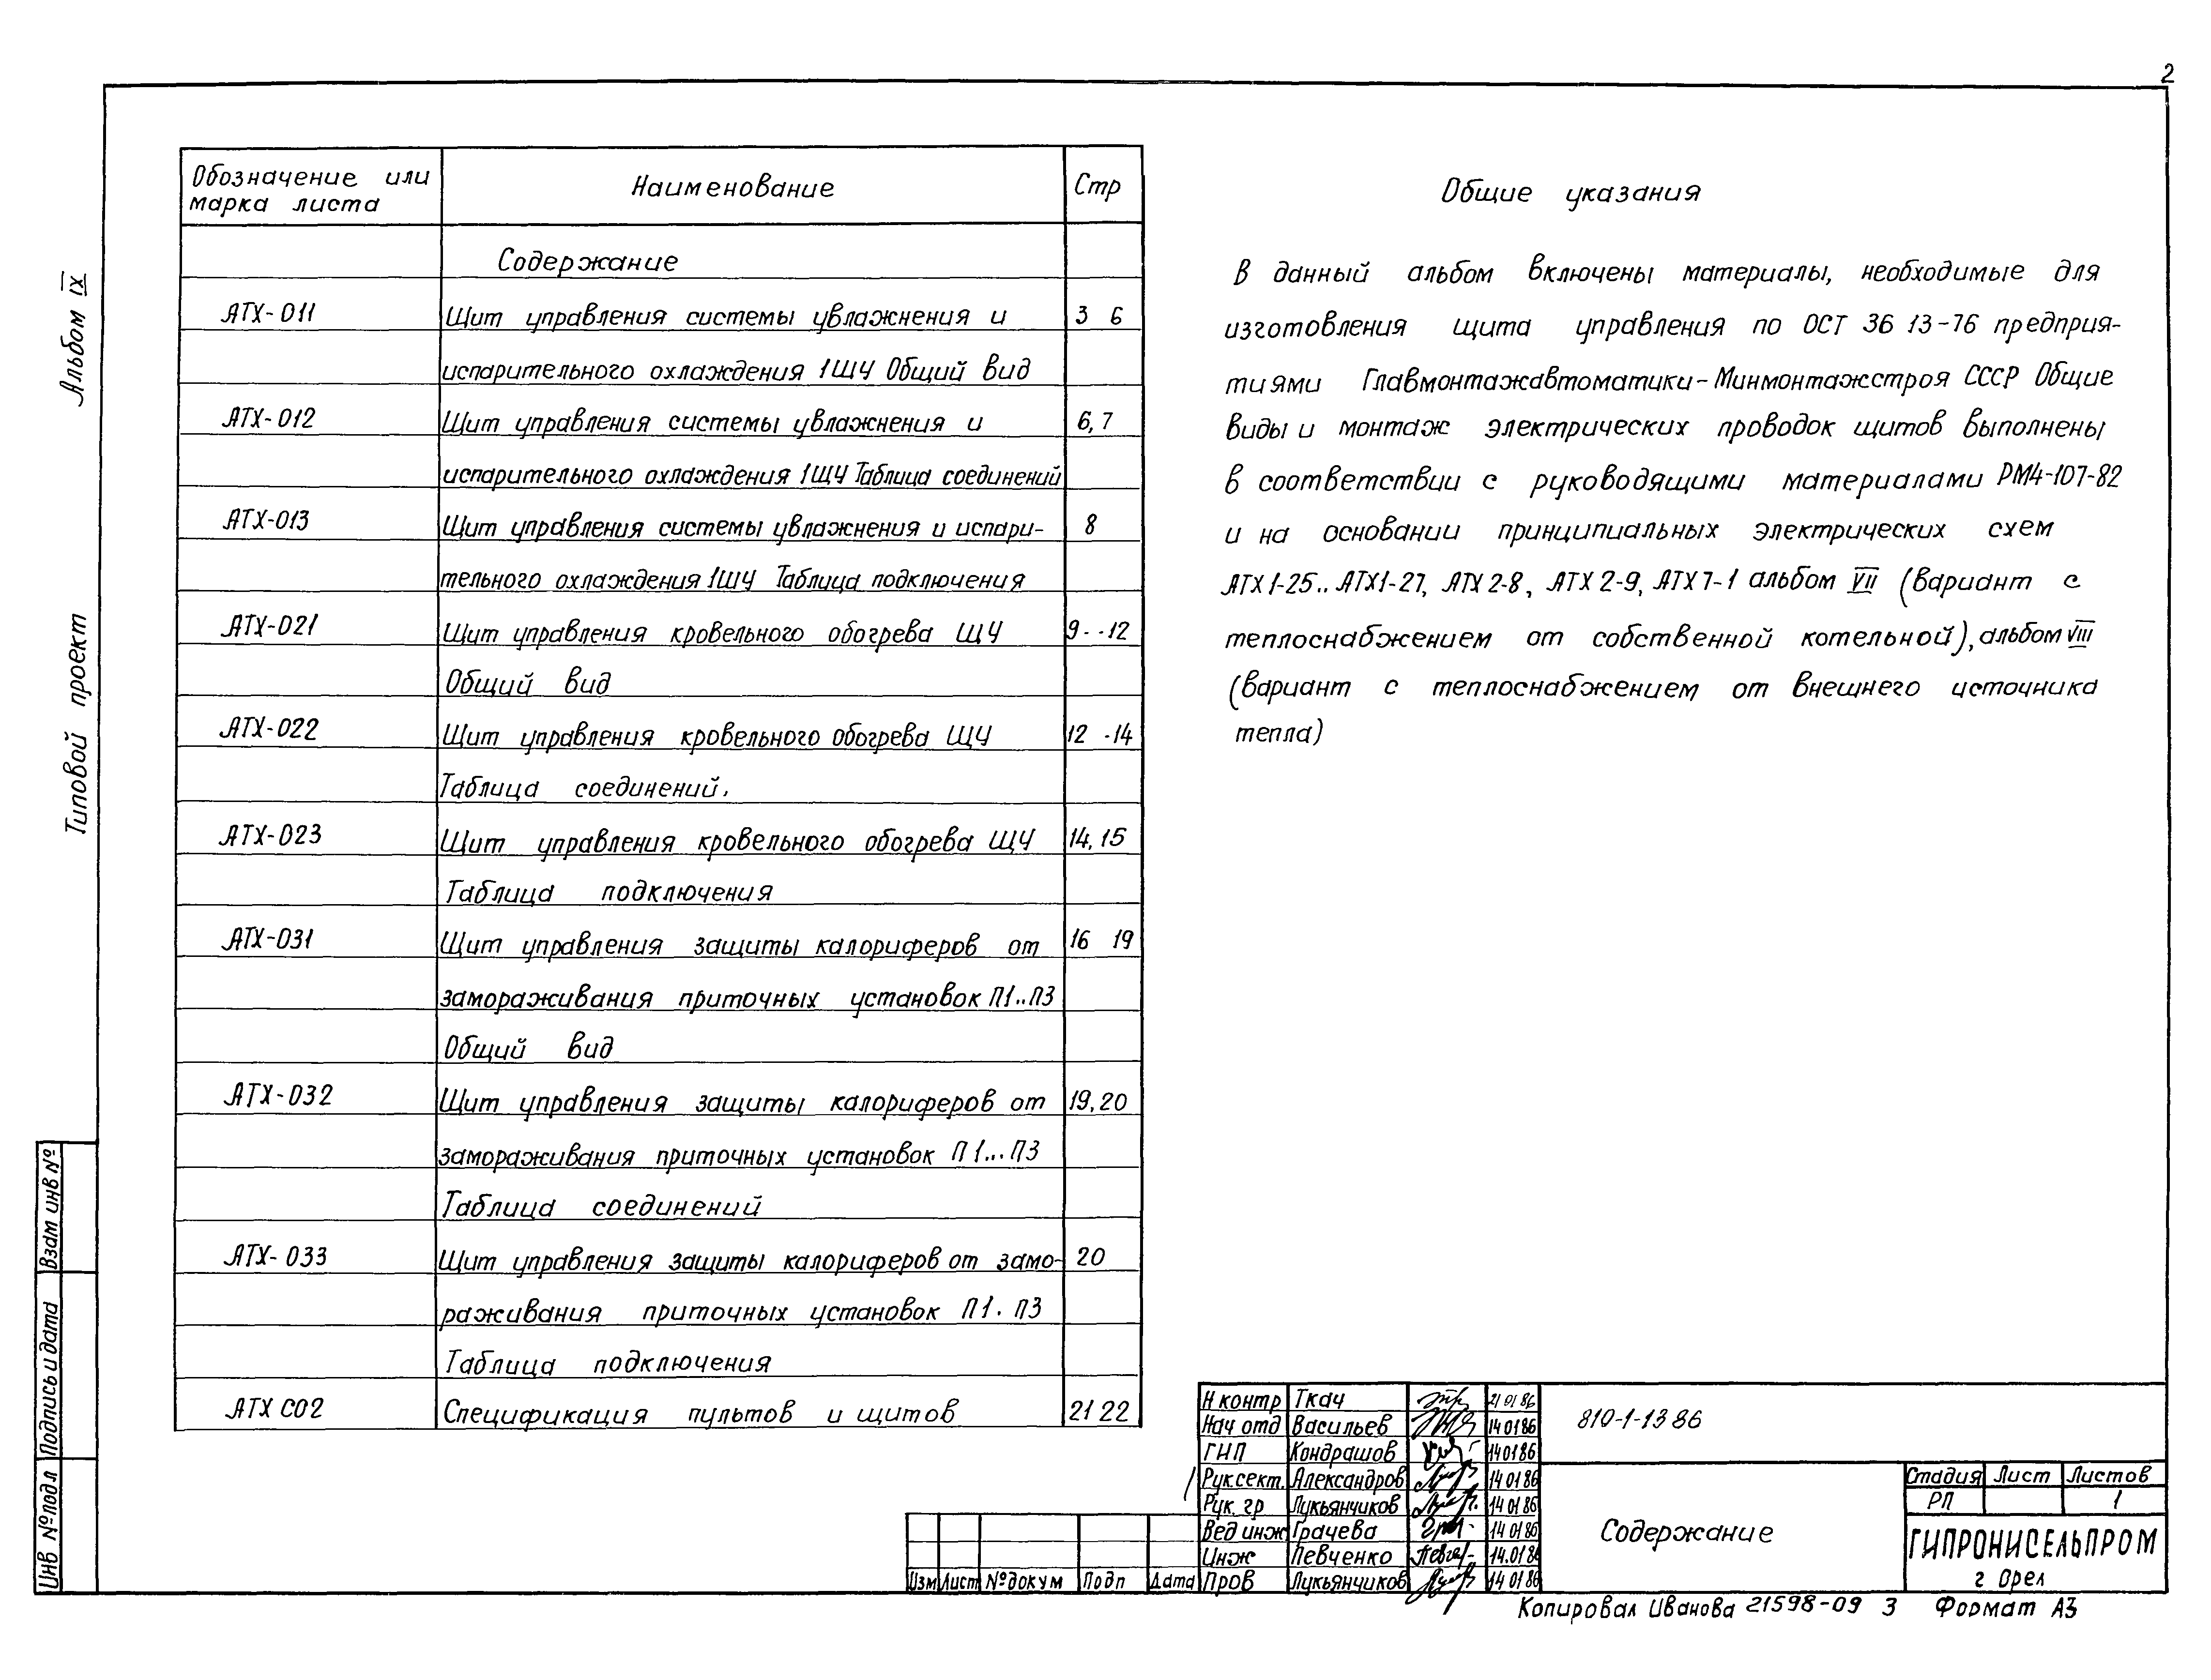 2
Альбом IX
Типовой проект
Обозначение или марка листа
Наименование
Стр
Содержание
АТХ-011 Щит управления системы увлажнения и 3 6
испарительного охлаждения 1ЩУ Общий вид
АТХ-012 Щит управления системы увлажнения и 6, 7
испарительного охлаждения 1ЩУ Таблица соединений
АТХ-013 Щит управления системы увлажнения и испари- 8
тельного охлаждения 1ЩУ Таблица подключения
АТХ-021 Щит управления кровельного обогрева ЩУ 9--12
Общий вид
АТХ-022 Щит управления кровельного обогрева ЩУ 12 -14
Таблица соединений.
АТХ-023 Щит управления кровельного обогрева ЩУ 14, 15
Таблица подключения
АТХ-031 Щит управления защиты калориферов от 16 19
замораживания приточных установок П1..П3
Общий вид
АТХ-032 Щит управления защиты калориферов от 19, 20
замораживания приточных установок П1...П3
Таблица соединений
АТХ-033 Щит управления защиты калориферов от замо- 20
раживания приточных установок П1. П3
Таблица подключения
АТХ С02 Спецификация пультов и щитов 21 22
Общие указания
В данный альбом включены материалы, необходимые для
изготовления щита управления по ОСТ 36 13-76 предприя-
тиями Главмонтажавтоматики-Минмонтажстроя СССР Общие
виды и монтаж электрических проводок щитов выполнены
в соответствии с руководящими материалами РМ4-107-82
и на основании принципиальных электрических схем
АТХ1-25.. АТХ1-27, АТХ2-8, АТХ2-9, АТХ7-1 альбом VII (вариант с
теплоснабжением от собственной котельной), альбом VIII
(вариант с теплоснабжением от внешнего источника
тепла)
Взам инв №
Подпись и дата
Инв № подл
Н контр Ткач 21 01 86
Нач отд Васильев 14 01 86
ГИП Кондрашов 14 01 86
Рук.сект. Александров 14 01 86
Рук. гр Лукьянчиков 14 01 86
Вед инж Грачева 14 01 86
Инж Певченко 14.01 86
Пров Лукьянчиков 14 01 86
Изм Лист № докум Подп Дата
810-1-13 86
Содержание
Стадия Лист Листов
РП 1
ГИПРОНИСЕЛЬПРОМ
г Орел
Копировал Иванова 21598-09 3 Формат А3